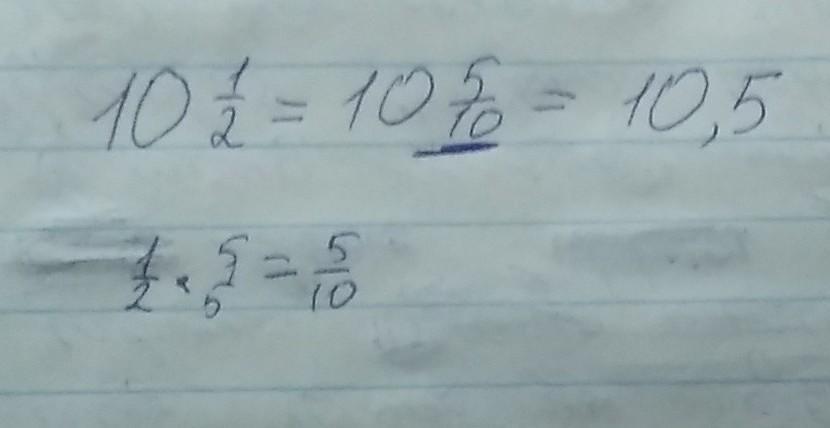 10 1/2 = 10 5/10 = 10,5
1/2 · 5/5 = 5/10